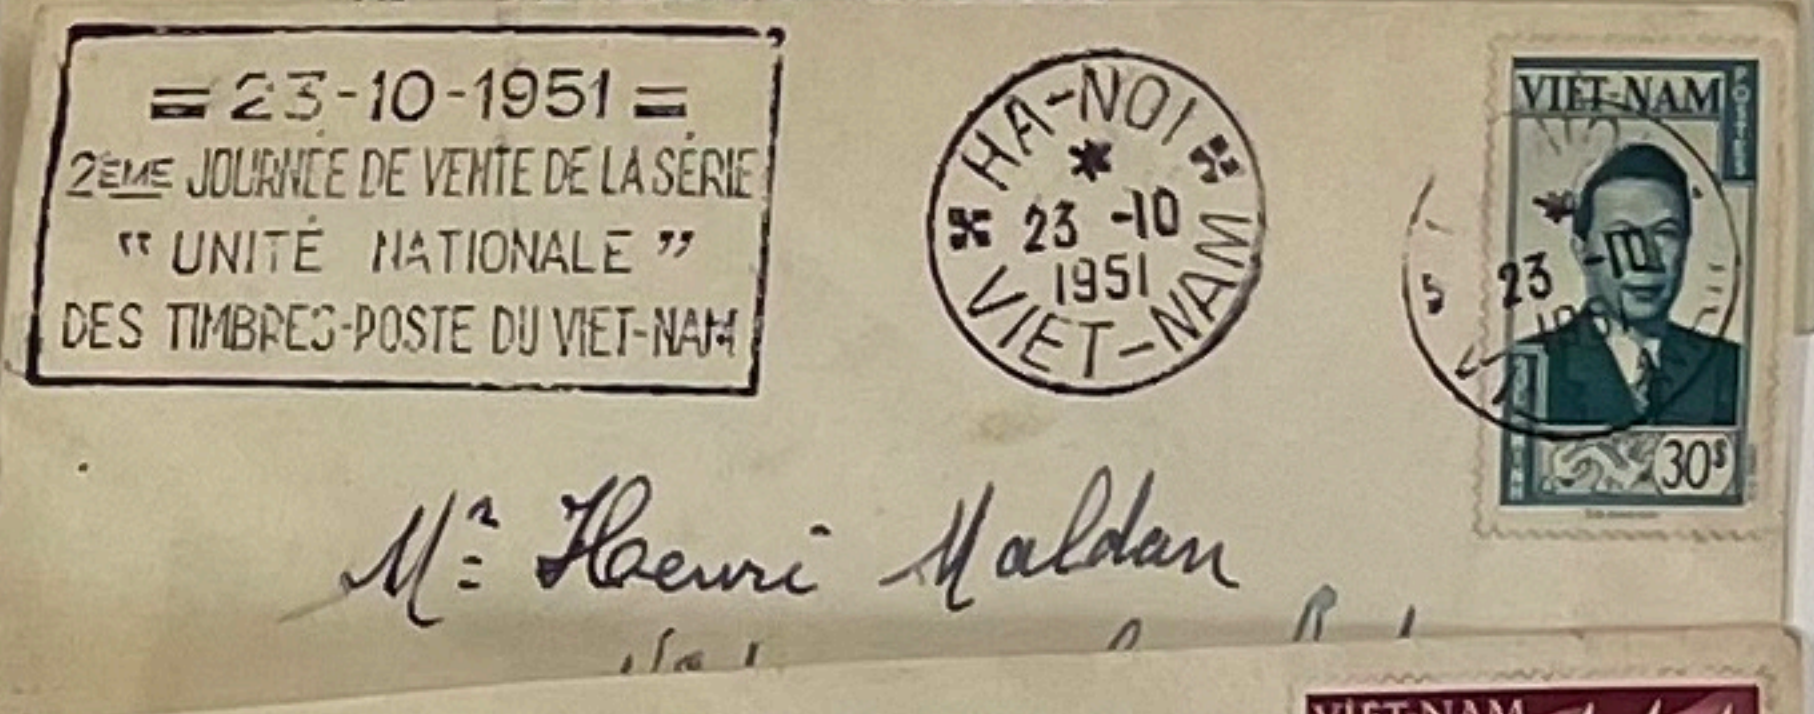 = 23-10-1951 =
2ÈME JOURNÉE DE VENTE DE LA SÉRIE
“ UNITÉ NATIONALE ”
DES TIMBRES-POSTE DU VIET-NAM
HA-NOI
23 -10
1951
VIET-NAM
VIỆT-NAM
POSTES
23 -10
1951
30$
Mr Henri Maldan
VIỆT-NAM